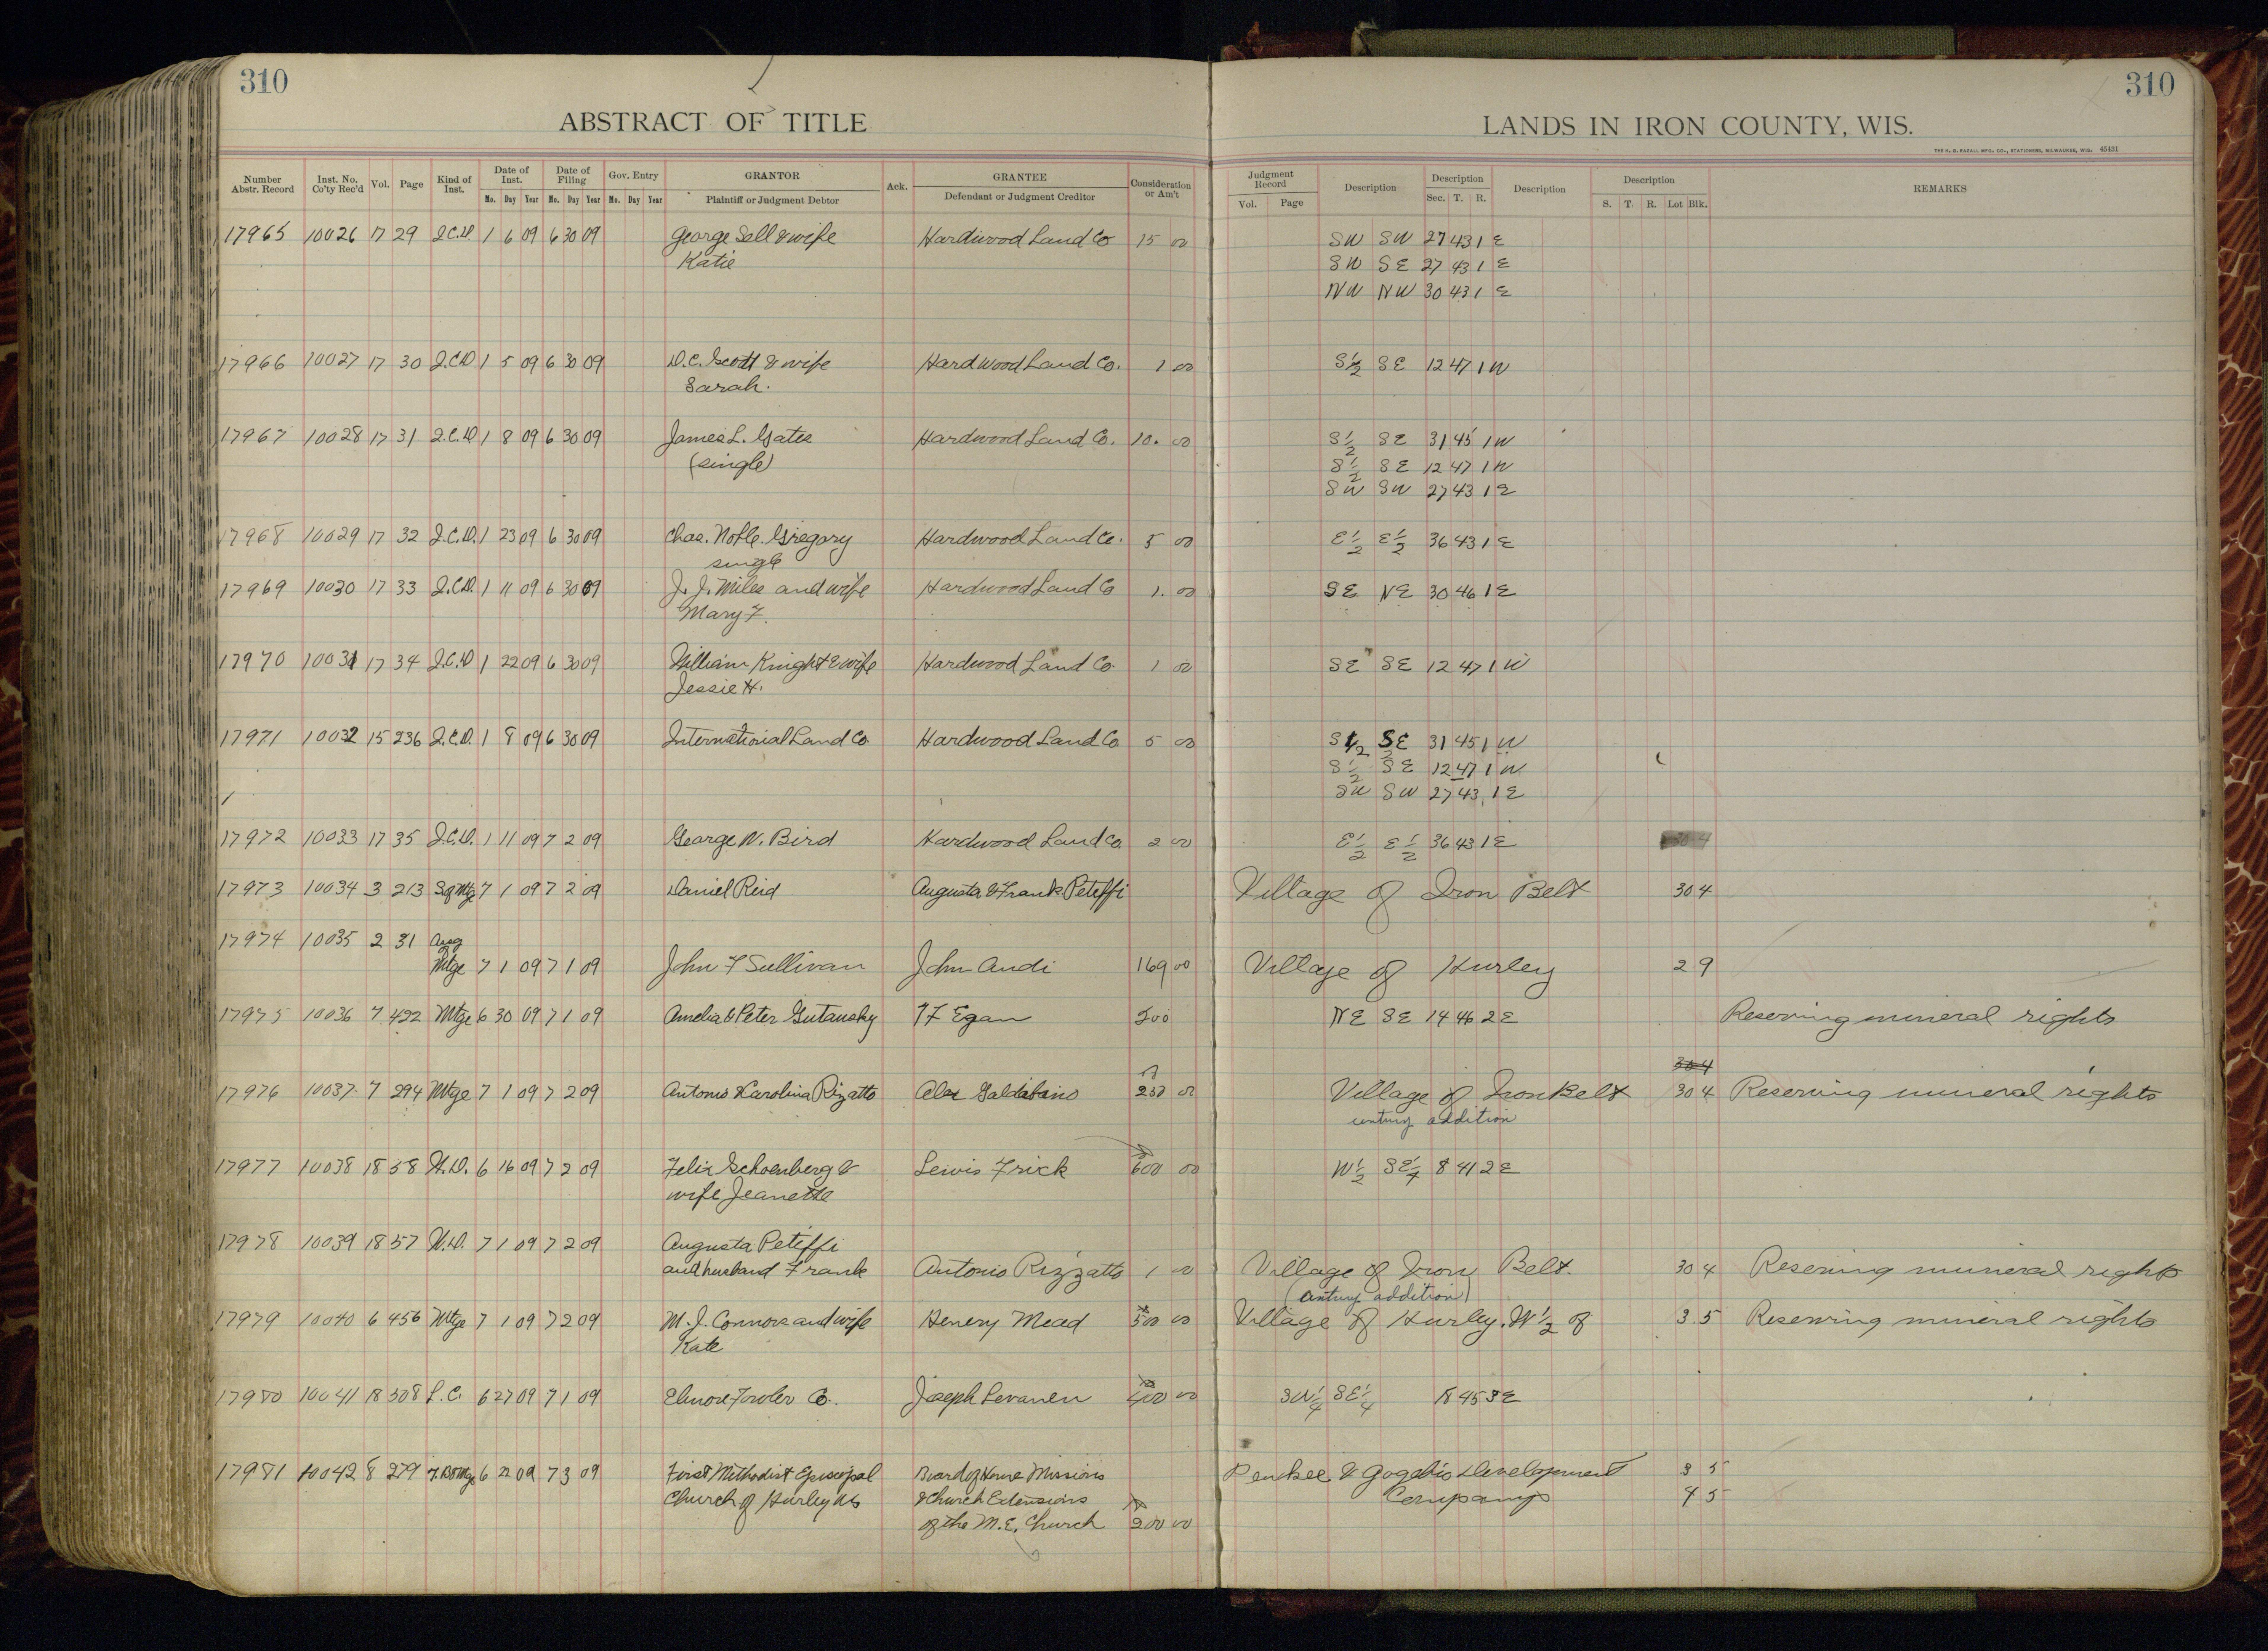 310
310
ABSTRACT OF TITLE
LANDS IN IRON COUNTY, WIS.
THE H. G. RAZALL MFG. CO., STATIONERS, MILWAUKEE, WIS. 45421
Number Abstr. Record Inst. No. Co'ty Rec'd Vol. Page Kind of Inst. Date of Inst. Mo. Day Year Date of Filing Mo. Day Year Gov. Entry Mo. Day Year GRANTOR Plaintiff or Judgment Debtor Ack. GRANTEE Defendant or Judgment Creditor Consideration or Am't Judgment Record Vol. Page Description Description Sec. T. R. Description Description S. T. R. Lot Blk. REMARKS
17965 10026 17 29 Q.C.D. 1 6 09 6 30 09 George Sell & wife Hardwood Land Co 15 00 SW SW 27 43 1 E
Katie SW SE 27 43 1 E
NW NW 30 43 1 E
17966 10027 17 30 Q.C.D 1 5 09 6 30 09 D.C. Scott & wife Hardwood Land Co. 1 00 S½ SE 12 47 1 W
Sarah.
17967 10028 17 31 Q.C.D 1 8 09 6 30 09 James L. Gates Hardwood Land Co. 10. 00 S½ SE 31 45 1 W
(single) S½ SE 12 47 1 W
SW SW 27 43 1 E
17968 10029 17 32 Q.C.D. 1 23 09 6 30 09 Chas. Noble Gregory Hardwood Land Co. 5 00 E½ E½ 36 43 1 E
single
17969 10030 17 33 Q.C.D. 1 11 09 6 30 09 J. J. Miles and wife Hardwood Land Co 1. 00 SE NE 30 46 1 E
Mary F.
17970 10031 17 34 Q.C.D 1 22 09 6 30 09 William Knight & wife Hardwood Land Co. 1 00 SE SE 12 47 1 W
Jessie H.
17971 10032 15 236 Q.C.D. 1 8 09 6 30 09 International Land Co. Hardwood Land Co 5 00 S½ SE 31 45 1 W
S½ SE 12 47 1 W
SW SW 27 43 1 E
17972 10033 17 35 Q.C.D. 1 11 09 7 2 09 George W. Bird Hardwood Land Co 2 00 E½ E½ 36 43 1 E 30 4
17973 10034 3 213 Sq Mtge 7 1 09 7 2 09 Daniel Reid Augusta & Frank Peteffi Village of Iron Belt 30 4
17974 10035 2 31 Asg
Mtge 7 1 09 7 1 09 John F Sullivan John Andi 169 00 Village of Hurley 2 9
17975 10036 7 422 Mtge 6 30 09 7 1 09 Amelia & Peter Gutansky T F Egan 500 NE SE 14 46 2 E Reserving mineral rights
304
17976 10037 7 294 Mtge 7 1 09 7 2 09 Antonio & Carolina Rizatto Alex Galdabino 250 00 Village of Iron Belt 30 4 Reserving mineral rights
century addition
17977 10038 18 58 W.D. 6 16 09 7 2 09 Felix Schoenberg & Lewis Frick 600 00 W½ SE¼ 8 41 2 E
wife Jeanette
17978 10039 18 57 W.D. 7 1 09 7 2 09 Augusta Peteffi
and husband Frank Antonio Rizzatto 1 00 Village of Iron Belt. 30 4 Reserving mineral rights
(century addition)
17979 10040 6 456 Mtge 7 1 09 7 2 09 M. J. Connors and wife Henery Mead 500 00 Village of Hurley. W½ of 3 5 Reserving mineral rights
Kate
17980 10041 18 308 L.C. 6 27 09 7 1 09 Elmore Fowler Co. Joseph Levanen 400 00 SW¼ SE¼ 18 45 3 E
17981 10042 8 279 6 22 09 7 3 09 First Methodist Episcopal Board of Home Missions Penkee & Gogebic Development 3 5
Church of Hurley Wis & Church Extensions Company 4 5
of the M.E. Church 200 00